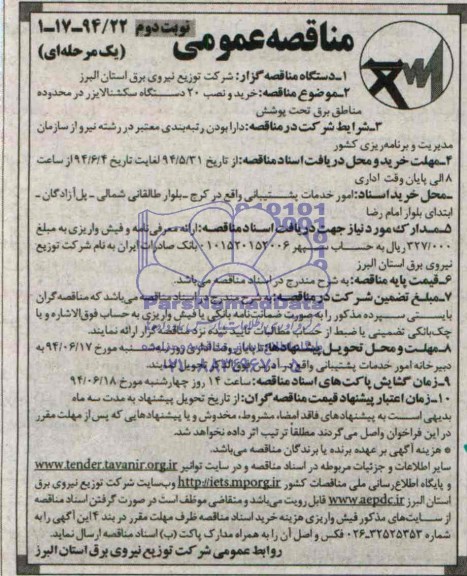 مناقصه عمومی
نوبت دوم ۹۴/۲۲-۱۷-۱
(یک مرحله‌ای)
۱-دستگاه مناقصه گزار: شرکت توزیع نیروی برق استان البرز
۲-موضوع مناقصه: خرید و نصب ۲۰ دستگاه سکشنالایزر در محدوده
مناطق برق تحت پوشش
۳-شرایط شرکت در مناقصه: دارا بودن رتبه‌بندی معتبر در رشته نیرو از سازمان
مدیریت و برنامه‌ریزی کشور
۴-مهلت خرید و محل دریافت اسناد مناقصه: از تاریخ ۹۴/۵/۳۱ لغایت تاریخ ۹۴/۶/۴ از ساعت
۸ الی پایان وقت اداری
-محل خرید اسناد: امور خدمات پشتیبانی واقع در کرج-بلوار طالقانی شمالی-پل آزادگان-
ابتدای بلوار امام رضا
۵-مدارک مورد نیاز جهت دریافت اسناد مناقصه: ارائه معرفی‌نامه و فیش واریزی به مبلغ
۳۲۷/۰۰۰ ریال به حساب سپهر ۰۱۰۱۵۲۰۱۵۲۰۰۶ بانک صادرات ایران به نام شرکت توزیع
نیروی برق استان البرز
۶-قیمت پایه مناقصه: به شرح مندرج در اسناد مناقصه می‌باشد.
۷-مبلغ تضمین شرکت در مناقصه: به شرح مندرج در اسناد مناقصه می‌باشد که مناقصه گران
بایستی سپرده مذکور را به صورت ضمانت‌نامه بانکی یا فیش واریزی به حساب فوق‌الاشاره و یا
چک بانکی تضمینی یا ضبط از حساب مطالبات تایید شده نزد مناقصه گزار ارائه نمایند.
۸-مهلت و محل تحویل پیشنهادها: تا پایان وقت اداری روز سه‌شنبه مورخ ۹۴/۰۶/۱۷ به
دبیرخانه امور خدمات پشتیبانی واقع در آدرس فوق‌الذکر تحویل نمایند.
۹-زمان گشایش پاکت‌های اسناد مناقصه: ساعت ۱۴ روز چهارشنبه مورخ ۹۴/۰۶/۱۸
۱۰-زمان اعتبار پیشنهاد قیمت مناقصه گران: از تاریخ تحویل پیشنهاد به مدت سه ماه
بدیهی است به پیشنهادهای فاقد امضاء، مشروط، مخدوش و یا پیشنهادهایی که پس از مهلت مقرر
در این فراخوان واصل می‌گردند مطلقاً ترتیب اثر داده نخواهد شد.
* هزینه آگهی بر عهده برنده یا برندگان مناقصه می‌باشد.
سایر اطلاعات و جزئیات مربوطه در اسناد مناقصه و در سایت توانیر www.tender.tavanir.org.ir
و پایگاه اطلاع‌رسانی ملی مناقصات کشور http://iets.mporg.ir وب‌سایت شرکت توزیع نیروی برق
استان البرز www.aepdc.ir قابل رویت می‌باشد و متقاضی موظف است در صورت گرفتن اسناد مناقصه
از سایت‌های مذکور فیش واریزی هزینه خرید اسناد مناقصه ظرف مهلت مقرر در بند ۴ این آگهی را به
شماره ۳۲۵۲۵۳۵۳-۰۲۶ فکس و اصل آن را به همراه مدارک پاکت (ب) اسناد مناقصه ارسال نماید.
روابط عمومی شرکت توزیع نیروی برق استان البرز
ParsNamedData